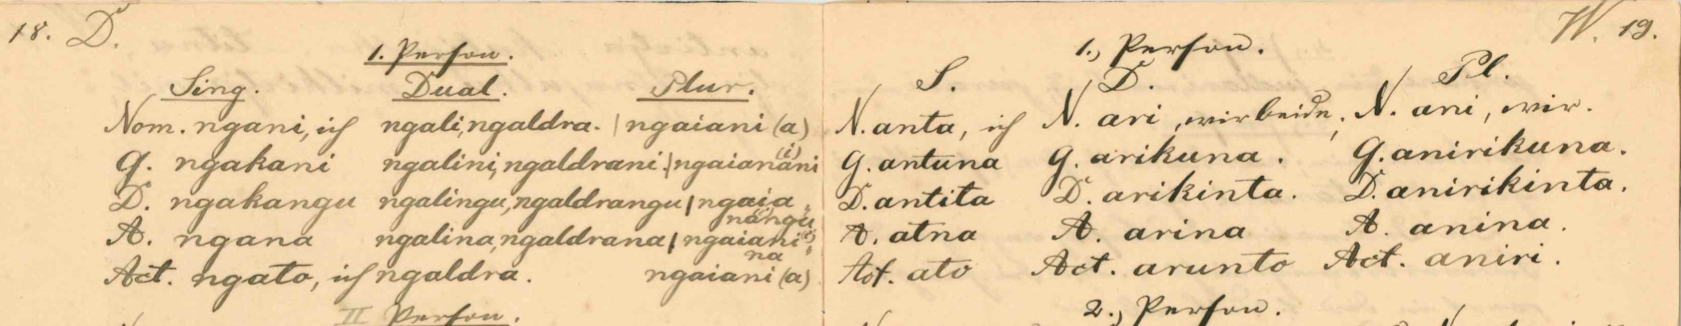 18. D.
1. Person.
Sing. Dual. Plur.
Nom. ngani, ich ngali, ngaldra. | ngaiani (a)
G. ngakani ngalini, ngaldrani. | ngaianani (i)
D. ngakangu ngalingu, ngaldrangu | ngaia
nangu
A. ngana ngalina, ngaldrana | ngaiani
na
Act. ngato, ich ngaldra. ngaiani (a)
II Person.
W. 19.
1., Person.
S. D. Pl.
N. anta, ich N. ari, wir beide, N. ani, wir.
G. antuna G. arikuna. G. anirikuna.
D. antita D. arikinta. D. anirikinta.
A. atna A. arina A. anina.
Act. ato Act. arunto Act. aniri.
2., Person.